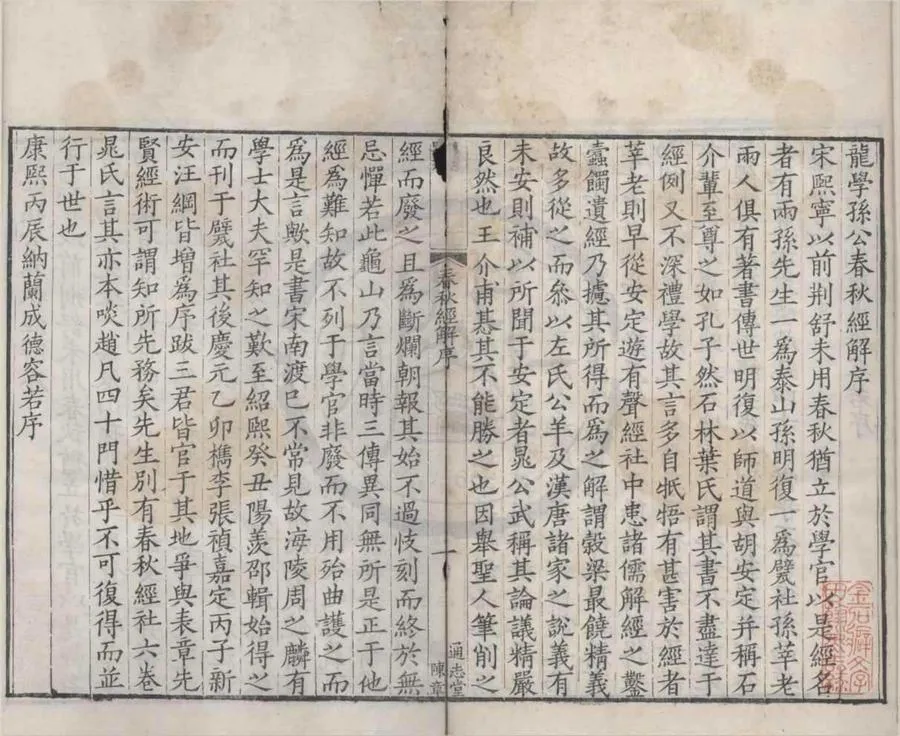 龍學孫公春秋經解序
宋熙寧以前荆舒未用春秋猶立於學官以是經名
者有兩孫先生一爲泰山孫明復一爲甓社孫莘老
兩人俱有著書傳世明復以師道與胡安定并稱石
介輩至尊之如孔子然石林葉氏謂其書不盡達于
經例又不深禮學故其言多自牴牾有甚害於經者
莘老則早從安定遊有聲經社中患諸儒解經之鑿
蠹蠲遺經乃據其所得而爲之解謂穀梁最饒精義
故多從之而叅以左氏公羊及漢唐諸家之說義有
未安則補以所聞于安定者晁公武稱其論議精嚴
良然也王介甫惎其不能勝之也因舉聖人筆削之
春秋經解序
一
通志堂
陳章
經而廢之且爲斷爛朝報其始不過忮刻而終於無
忌憚若此龜山乃言當時三傳異同無所是正于他
經爲難知故不列于學官非廢而不用殆曲護之而
爲是言歟是書宋南渡已不常見故海陵周之麟有
學士大夫罕知之歎至紹熙癸丑陽羨邵輯始得之
而刊于甓社其後慶元乙卯檇李張禎嘉定丙子新
安汪綱皆增爲序跋三君皆官于其地爭與表章先
賢經術可謂知所先務矣先生別有春秋經社六卷
晁氏言其亦本啖趙凡四十門惜乎不可復得而並
行于世也
康熙丙辰納蘭成德容若序